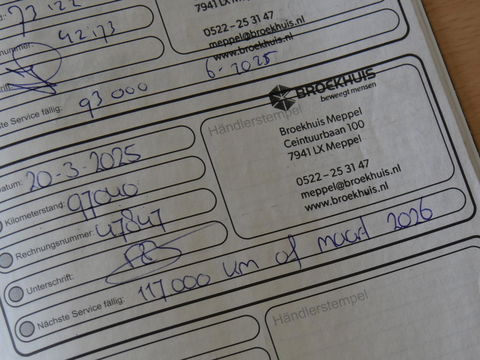 73122
7941 LX Meppel
nummer: 42173
0522-25 31 47
meppel@broekhuis.nl
www.broekhuis.nl
ste Service fällig: 93000 6-2025
BROEKHUIS
beweegt mensen
Händlerstempel
Broekhuis Meppel
Ceintuurbaan 100
7941 LX Meppel
0522-25 31 47
meppel@broekhuis.nl
www.broekhuis.nl
atum: 20-3-2025
Kilometerstand: 97040
Rechnungsnummer: 47847
Unterschrift:
Nächste Service fällig: 117000 km of maart 2026
Händlerstempel